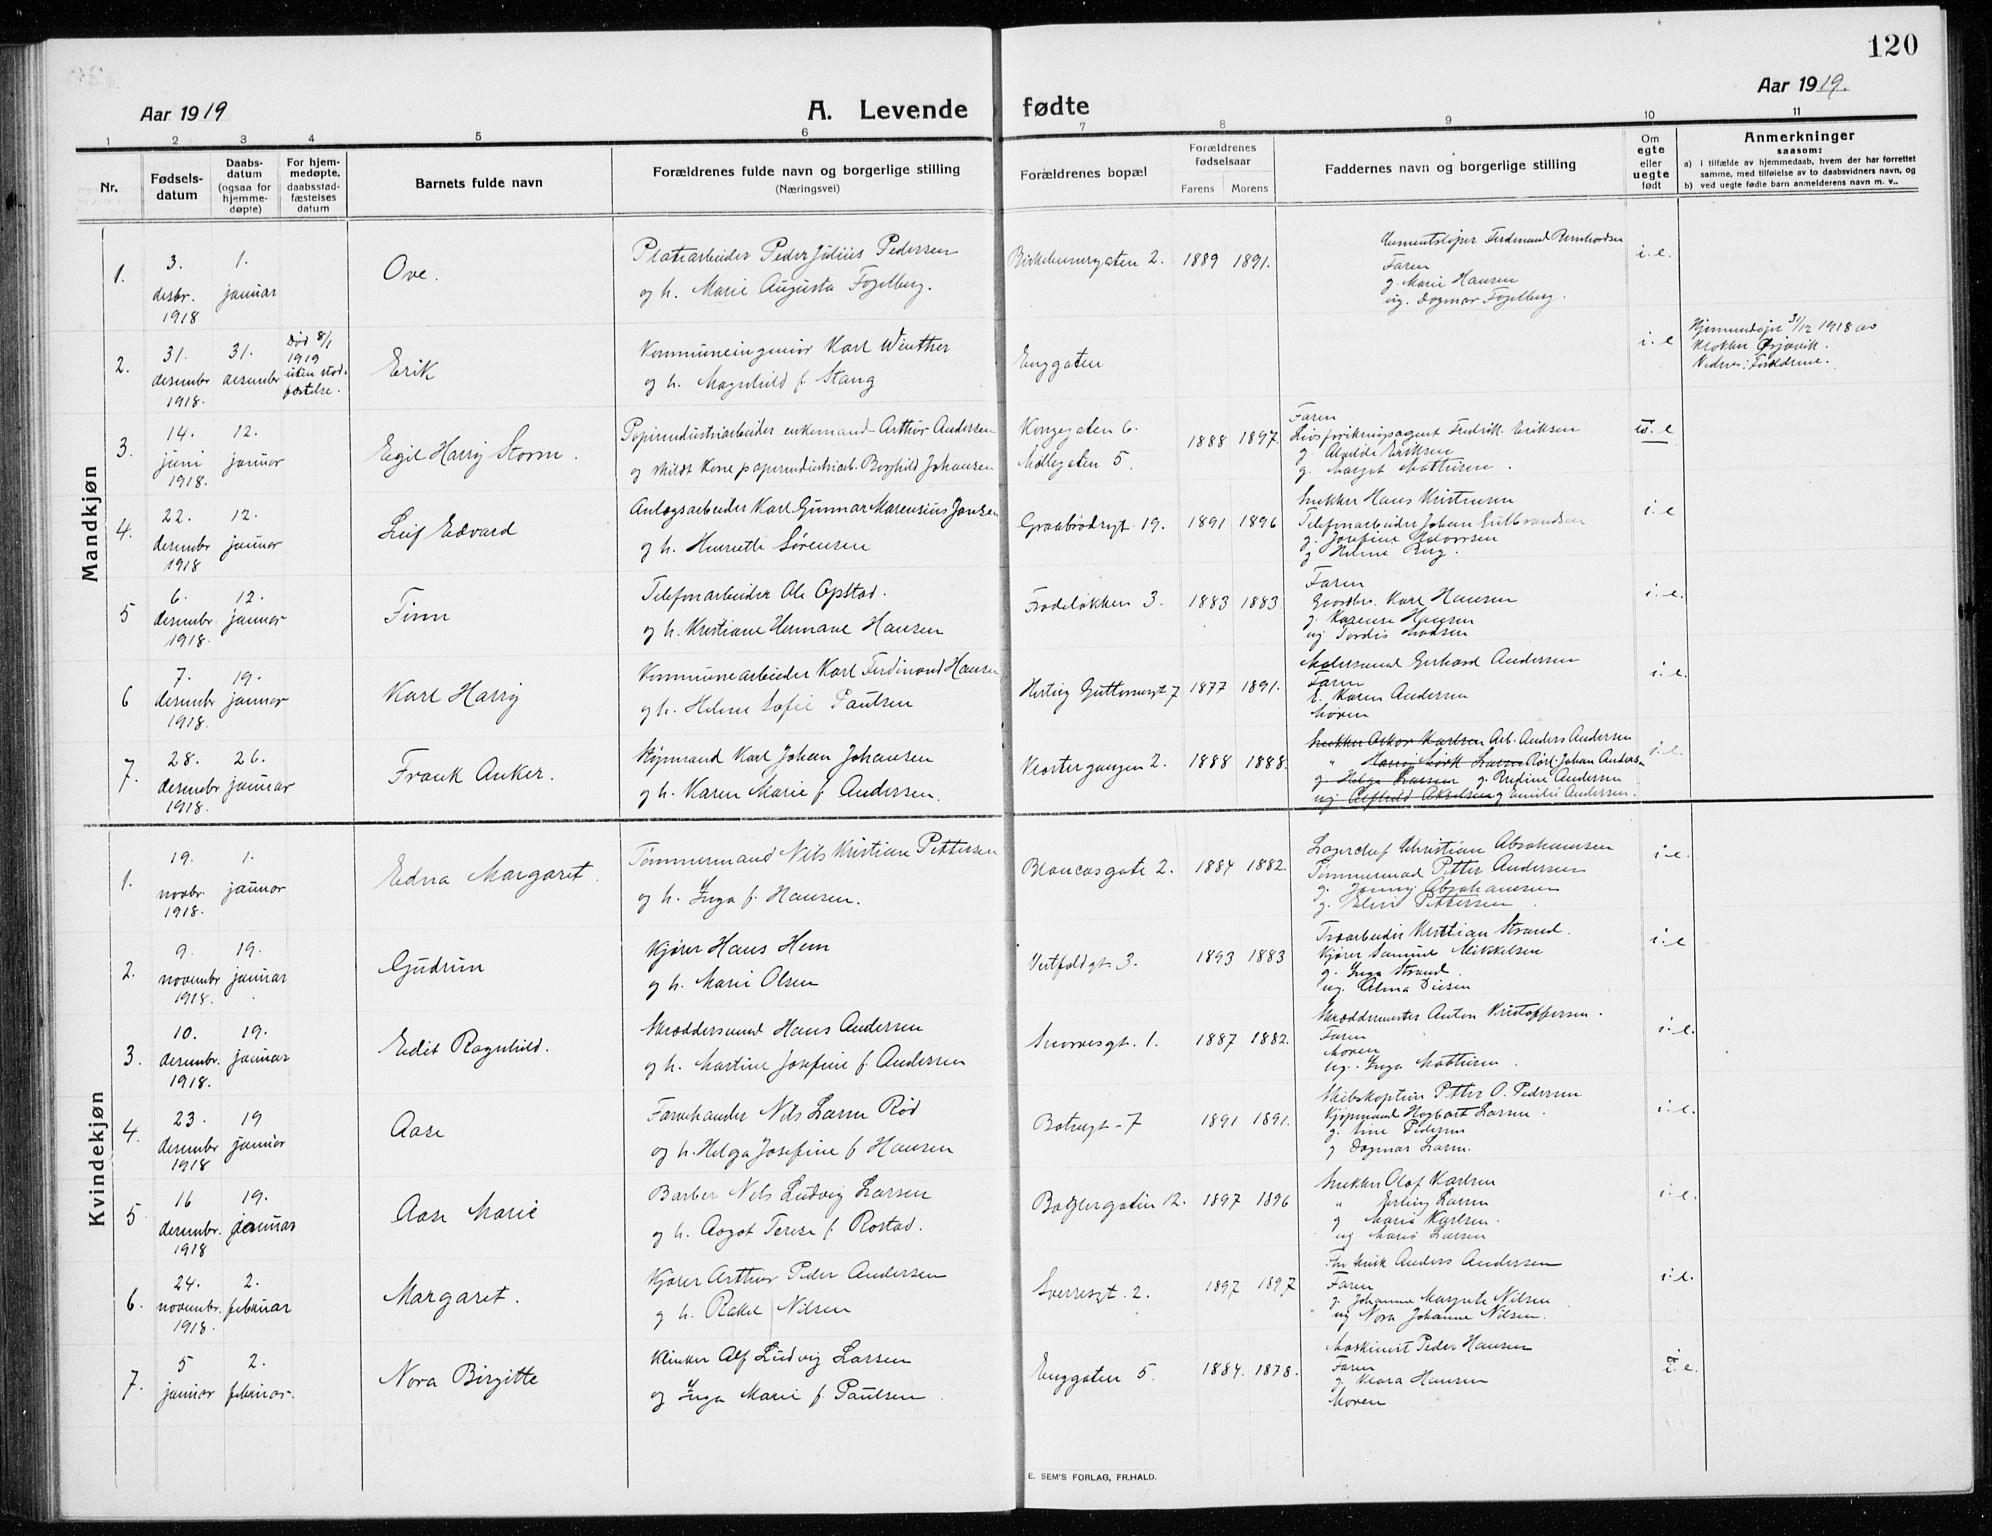 120
Aar 1919
A. Levende fødte
Aar 1919.
1 2 3 4 5 6 7 8 9 10 11
Nr.
Fødsels-
datum
Daabs-
datum
(ogsaa for
hjemme-
døpte)
For hjem-
medøpte,
daabsstad-
fæstelses
datum
Barnets fulde navn
Forældrenes fulde navn og borgerlige stilling
(Næringsvei)
Forældrenes bopæl
Forældrenes
fødselsaar
Farens Morens
Faddernes navn og borgerlige stilling
Om
egte
eller
uegte
født
Anmerkninger
saasom:
a) i tilfælde av hjemmedaab, hvem der har forrettet
samme, med tilføielse av to daabsvidners navn, og
b) ved uegte fødte barn anmelderens navn m. v..
Mandkjøn
1.
3.
desbr.
1918
1.
januar
Ove.
Platearbeider Peder Julius Pedersen
og h. Marie Augusta Fogelberg.
Birkebeinergaten 2.
1889 1891.
Ferdinand Bernhardsen
Faren
g. Marie Hansen
ug. Dagmar Fogelberg.
i. e.
2.
31.
desember
1918.
31.
desember
Død 8/1
1919
uten stad-
fæstelse.
Erik
Kommuneingeniør Karl Winther
og h. Magnhild f. Stang
Enggaten
i. e
Hjemmedøpt 31/12 1918 av
klokker Gjøvik.
Vidner: Forældrene.
3.
14.
juni
1918.
12.
januar
Egil Harry Storm.
Papirindustriarbeider enkemand Arthur Andersen
og skildt kone papirindustriarb. Borghild Johansen
Kongegaten 6.
Møllegaten 5.
1888 1897.
Faren
Livsforsikringsagent Fredrik Eriksen
g. Alvilde Eriksen
g. Margit Mathisen.
u. e
4.
22.
desember
1918
12.
januar
Leif Edvard
Anlægsarbeider Karl Gunnar Marensius Jansen
og h. Henriette Sørensen
Graabrødregt. 19.
1891 1896
Snekker Hans Kristensen
Telefonarbeider Johan Gulbrandsen
g. Josefine Halvorsen
g. Helene Berg.
i. e
5
6.
desember.
1918.
12.
januar
Finn
Telefonarbeider Ole Opstad.
og h. Kristiane Hermane Hansen
Frodeløkken 3.
1883 1883.
Faren
Gaardbr. Karl Hansen
g. Karense Hansen
ug Tordis Madsen
i. e.
6
7.
desember
1918.
19.
januar
Karl Harry
Kommunearbeider Karl Ferdinand Hansen
og h. Helene Sofie Paulsen
Hertug Guttormsgt 7
1877 1891.
Malersvend Gerhard Andersen
Faren
E. Karen Andersen
Moren
i. e.
7.
28.
desember
1918.
26.
januar
Frank Anker.
Kjøpmand Karl Johan Johansen
og h. Karen Marie f. Andersen.
Klostergangen 2.
1888 1888.
Snekker Oskar Karlsen Arb. Anders Andersen
" Larsen Rørl. Johan Andersen
g. Helga Larsen g. Rudine Andersen
ug Alfhild Akselsen g Emilie Andersen.
i. e.
Kvindekjøn
1.
19.
novbr.
1918.
1.
januar
Edna Margaret.
Tømmermand Nils Kristian Pettersen
og h. Inga f. Hansen.
Blancasgate 2.
1884 1882.
Lagerchef Christian Abrahamsen
Tømmermand Petter Andersen
g. Jenny Abrahamsen
g. Elise Pettersen.
i. e.
2.
9.
november
1918.
19.
januar
Gudrun
Kjører Hans Hem
og h. Marie Olsen
Vestfoldgt. 3.
1893 1883
Træarbeider Kristian Strand.
Kjører Samuel Mikkelsen
g. Inga Strand.
ug. Alma Diesen
i. e
3.
10.
desember.
1918.
19.
januar
Edit Ragnhild.
Skræddersvend Hans Andersen
og h. Martine Josefine f. Andersen
Snorresgt. 1.
1887 1882.
Skræddermester Anton Kristoffersen.
Faren
Moren
ug. Inga Mathisen.
i. e.
4.
23.
desember
1918
19
januar
Aase
Farvehandler Nils Larsen Rød
og h. Helga Josefine f. Hansen
Baneigt. 7
1891 1891.
Skibskaptein Petter O. Pedersen
Kjøpmand Hagbart Larsen.
g. Sine Pedersen
g Dagmar Larsen.
i. e.
5
16
desember.
1918
19.
januar
Aase Marie
Barber Nils Ludvig Larsen
og h. Aagot Terese f. Rostad.
Baglergaten 12.
1897 1896
Snekker Olaf Karlsen
" Erling Larsen
g Marie Karlsen.
ug Marie Larsen
i. e.
6.
24.
novembr.
1918.
2.
februar
Margaret.
Kjører Arthur Peder Andersen
og h. Rakel Nilsen
Sverresgt. 2.
1897 1897
Anders Andersen
Faren
g. Johanne Margrete Nilsen
ug Nora Johanne Nilsen.
i. e.
7.
5
januar
2.
februar.
Nora Birgitte
Klinker Alf Ludvig Larsen
og Inga Marie f. Paulsen.
Enggaten 5.
1884. 1878.
Maskinist Peder Hansen
Faren
g. Klara Hansen
Moren
i. e.
E. SEM'S FORLAG, FR.HALD.